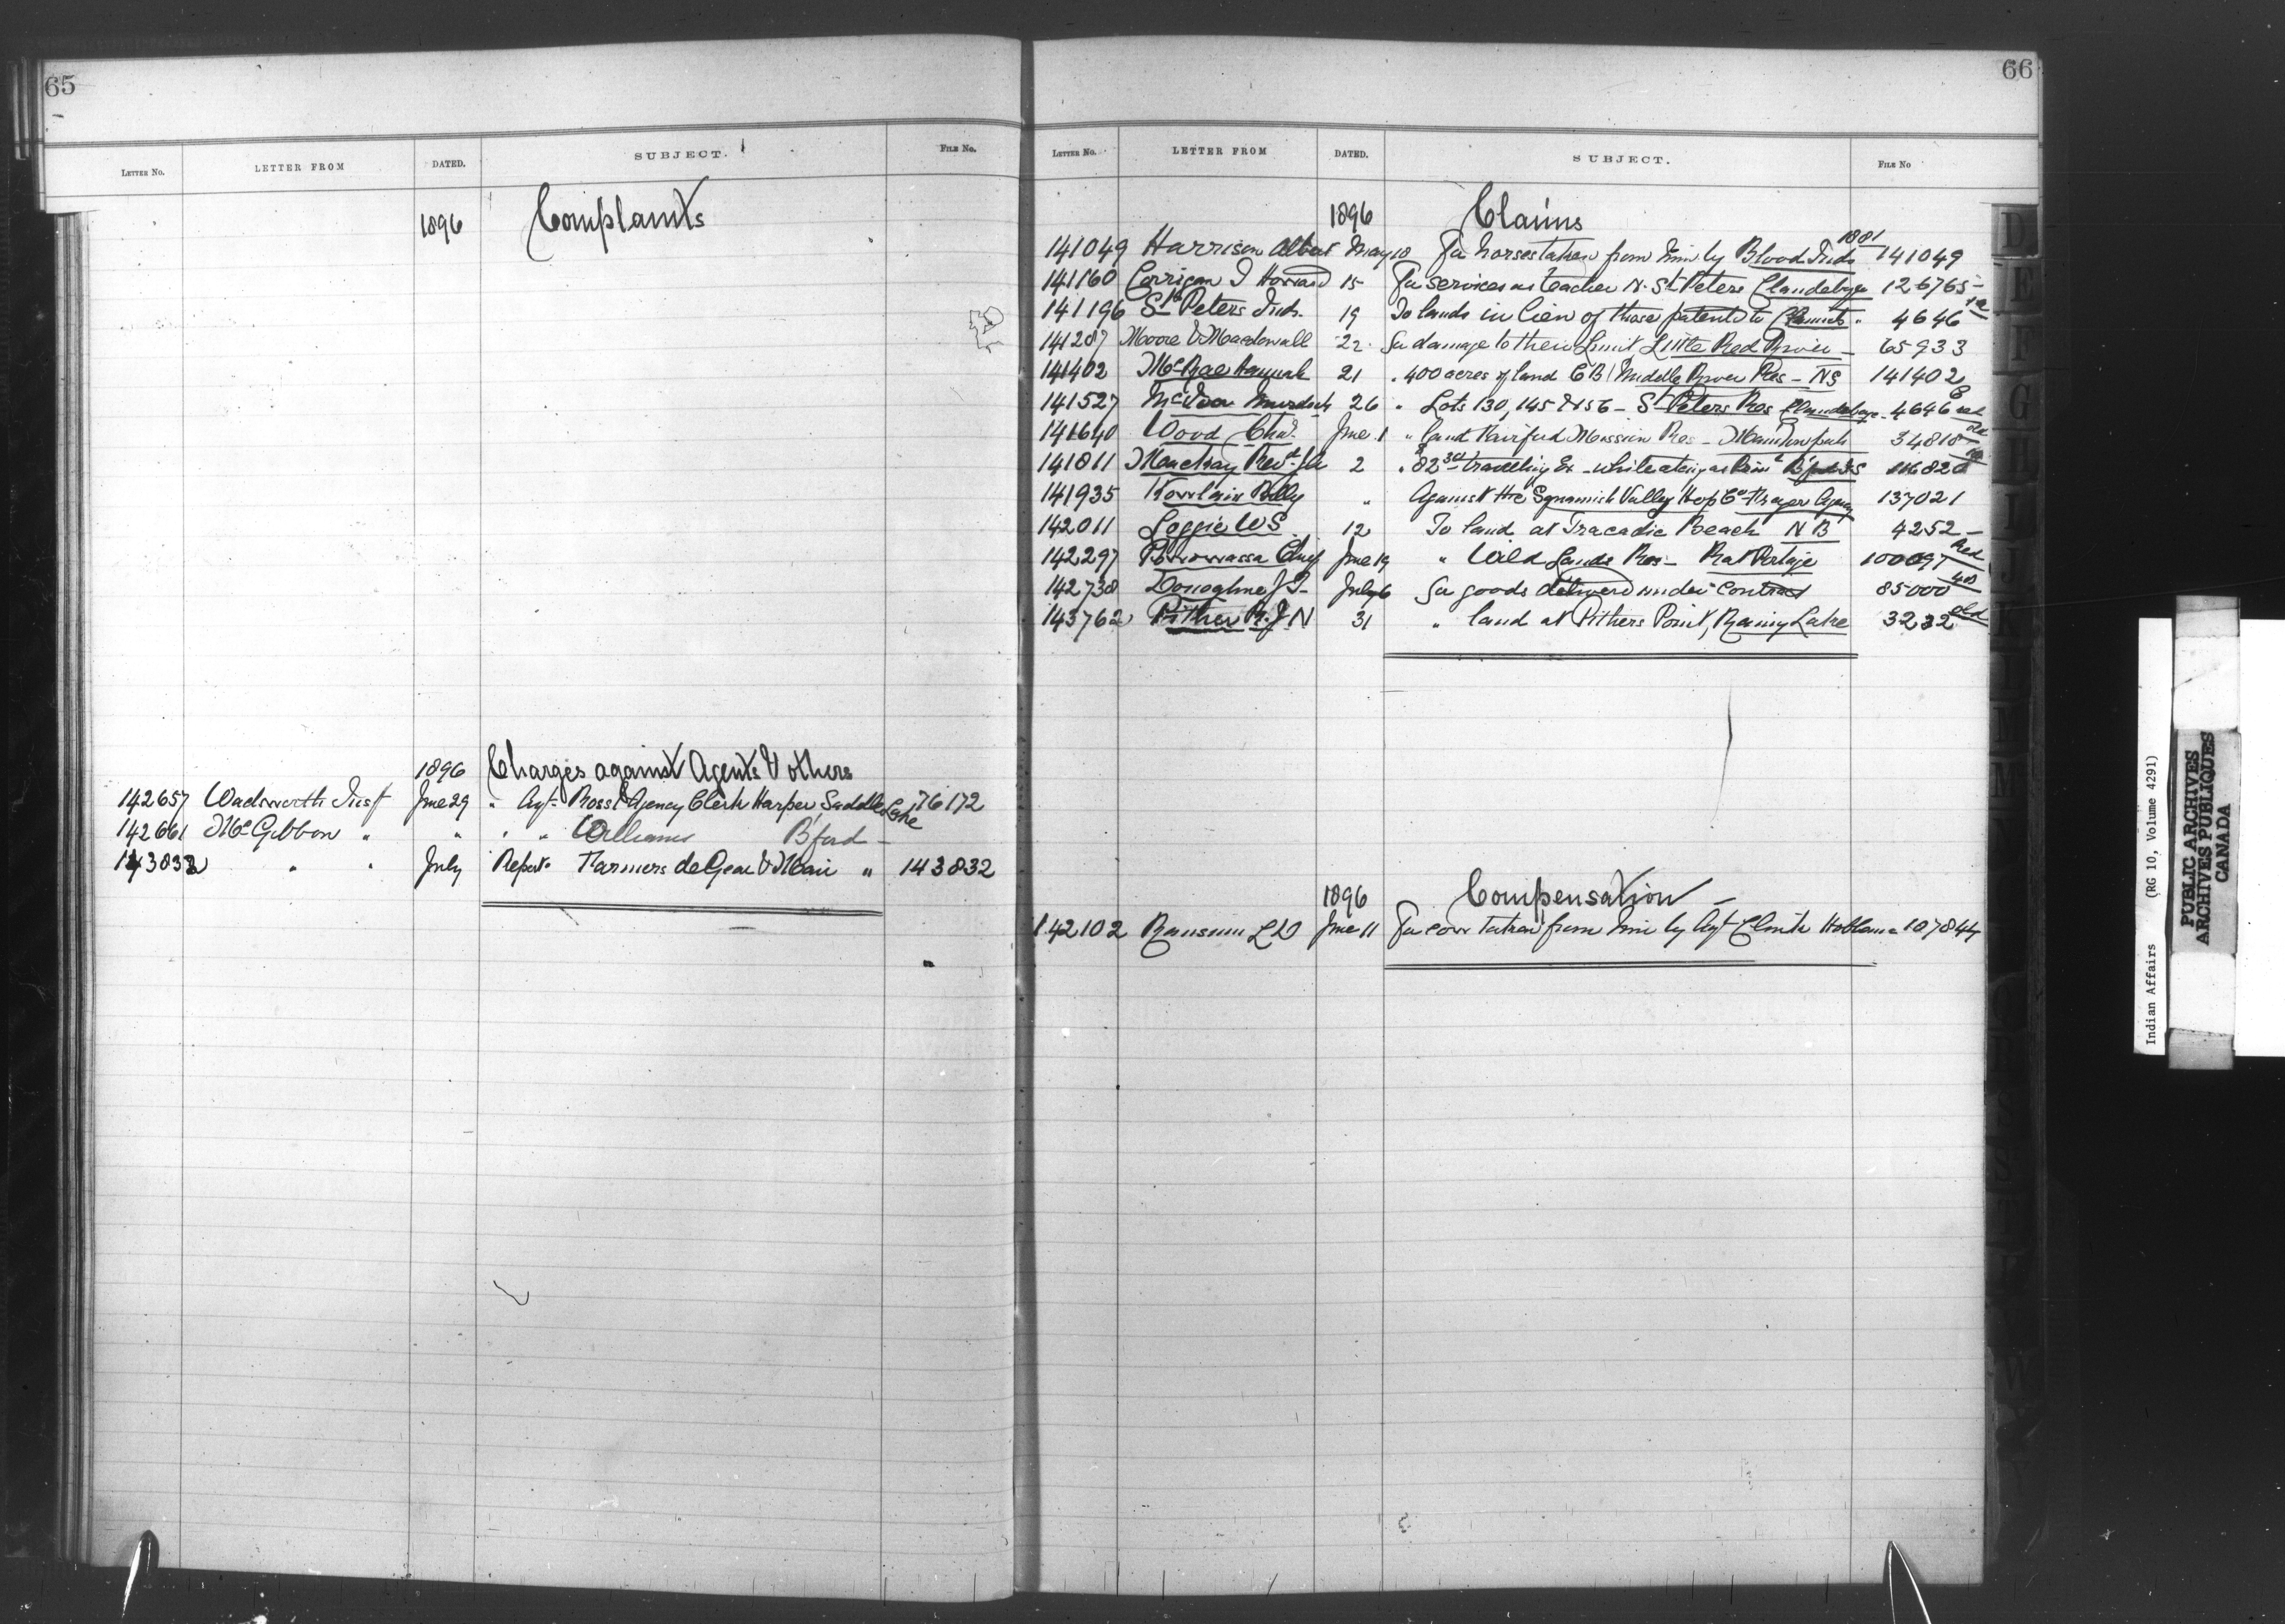 65
LETTER NO. LETTER FROM DATED. SUBJECT. FILE No.
1896 Complaints
1896 Charges against Agents & others
142657 Wadsworth Insp June 29 " Agt. Ross & Agency Clerk Harper Saddle Lake 76172
142661 McGibbon " " " " Williams B'ford -
143832 " " July Report Farmers de Gear & Nair " 143832
66
LETTER NO. LETTER FROM DATED. SUBJECT. FILE No
1896 Claims
141049 Harrison Albert May 10 For horses taken from him by Blood Inds 1881 141049
141160 Corrigan J Howard 15 For services as teacher N. St Peters Clandeboye 126765 -
141196 St Peters Inds. 19 To lands in lieu of those patented to " 4646
141287 Moore & Macdowall 22 For damage to their Limit, Little Red River - 65933
141402 McRae Hannah 21 " 400 acres of land C B / Middle River Res - NS 141402
141527 Murdoch 26 " Lots 130, 145 & 156 - St Peters Res Clandeboye - 4646
141640 Wood Chas. June 1 " land Fairford Mission Res - 34818
141811 2 " 82 travelling Ex - while acting as 116820
141935 Polly " Against the Squamish Valley Hop Co 137021
142011 Loggie W S 12 To land at Tracadie Beach N B 4252 -
142297 Powawassa Chief June 19 " Wild Lands Res - Rat Portage 100097 Red
142738 Donoghue J T July 6 For goods delivered under Contract 85000
143762 Pither R. J. N 31 " land at Pithers Point, Rainy Lake 3232 old
1896 Compensation -
142102 Ransom L D June 11 For cow taken from him by Agt Clink Hobbema 107844
Indian Affairs (RG 10, Volume 4291)
PUBLIC ARCHIVES
ARCHIVES PUBLIQUES
CANADA